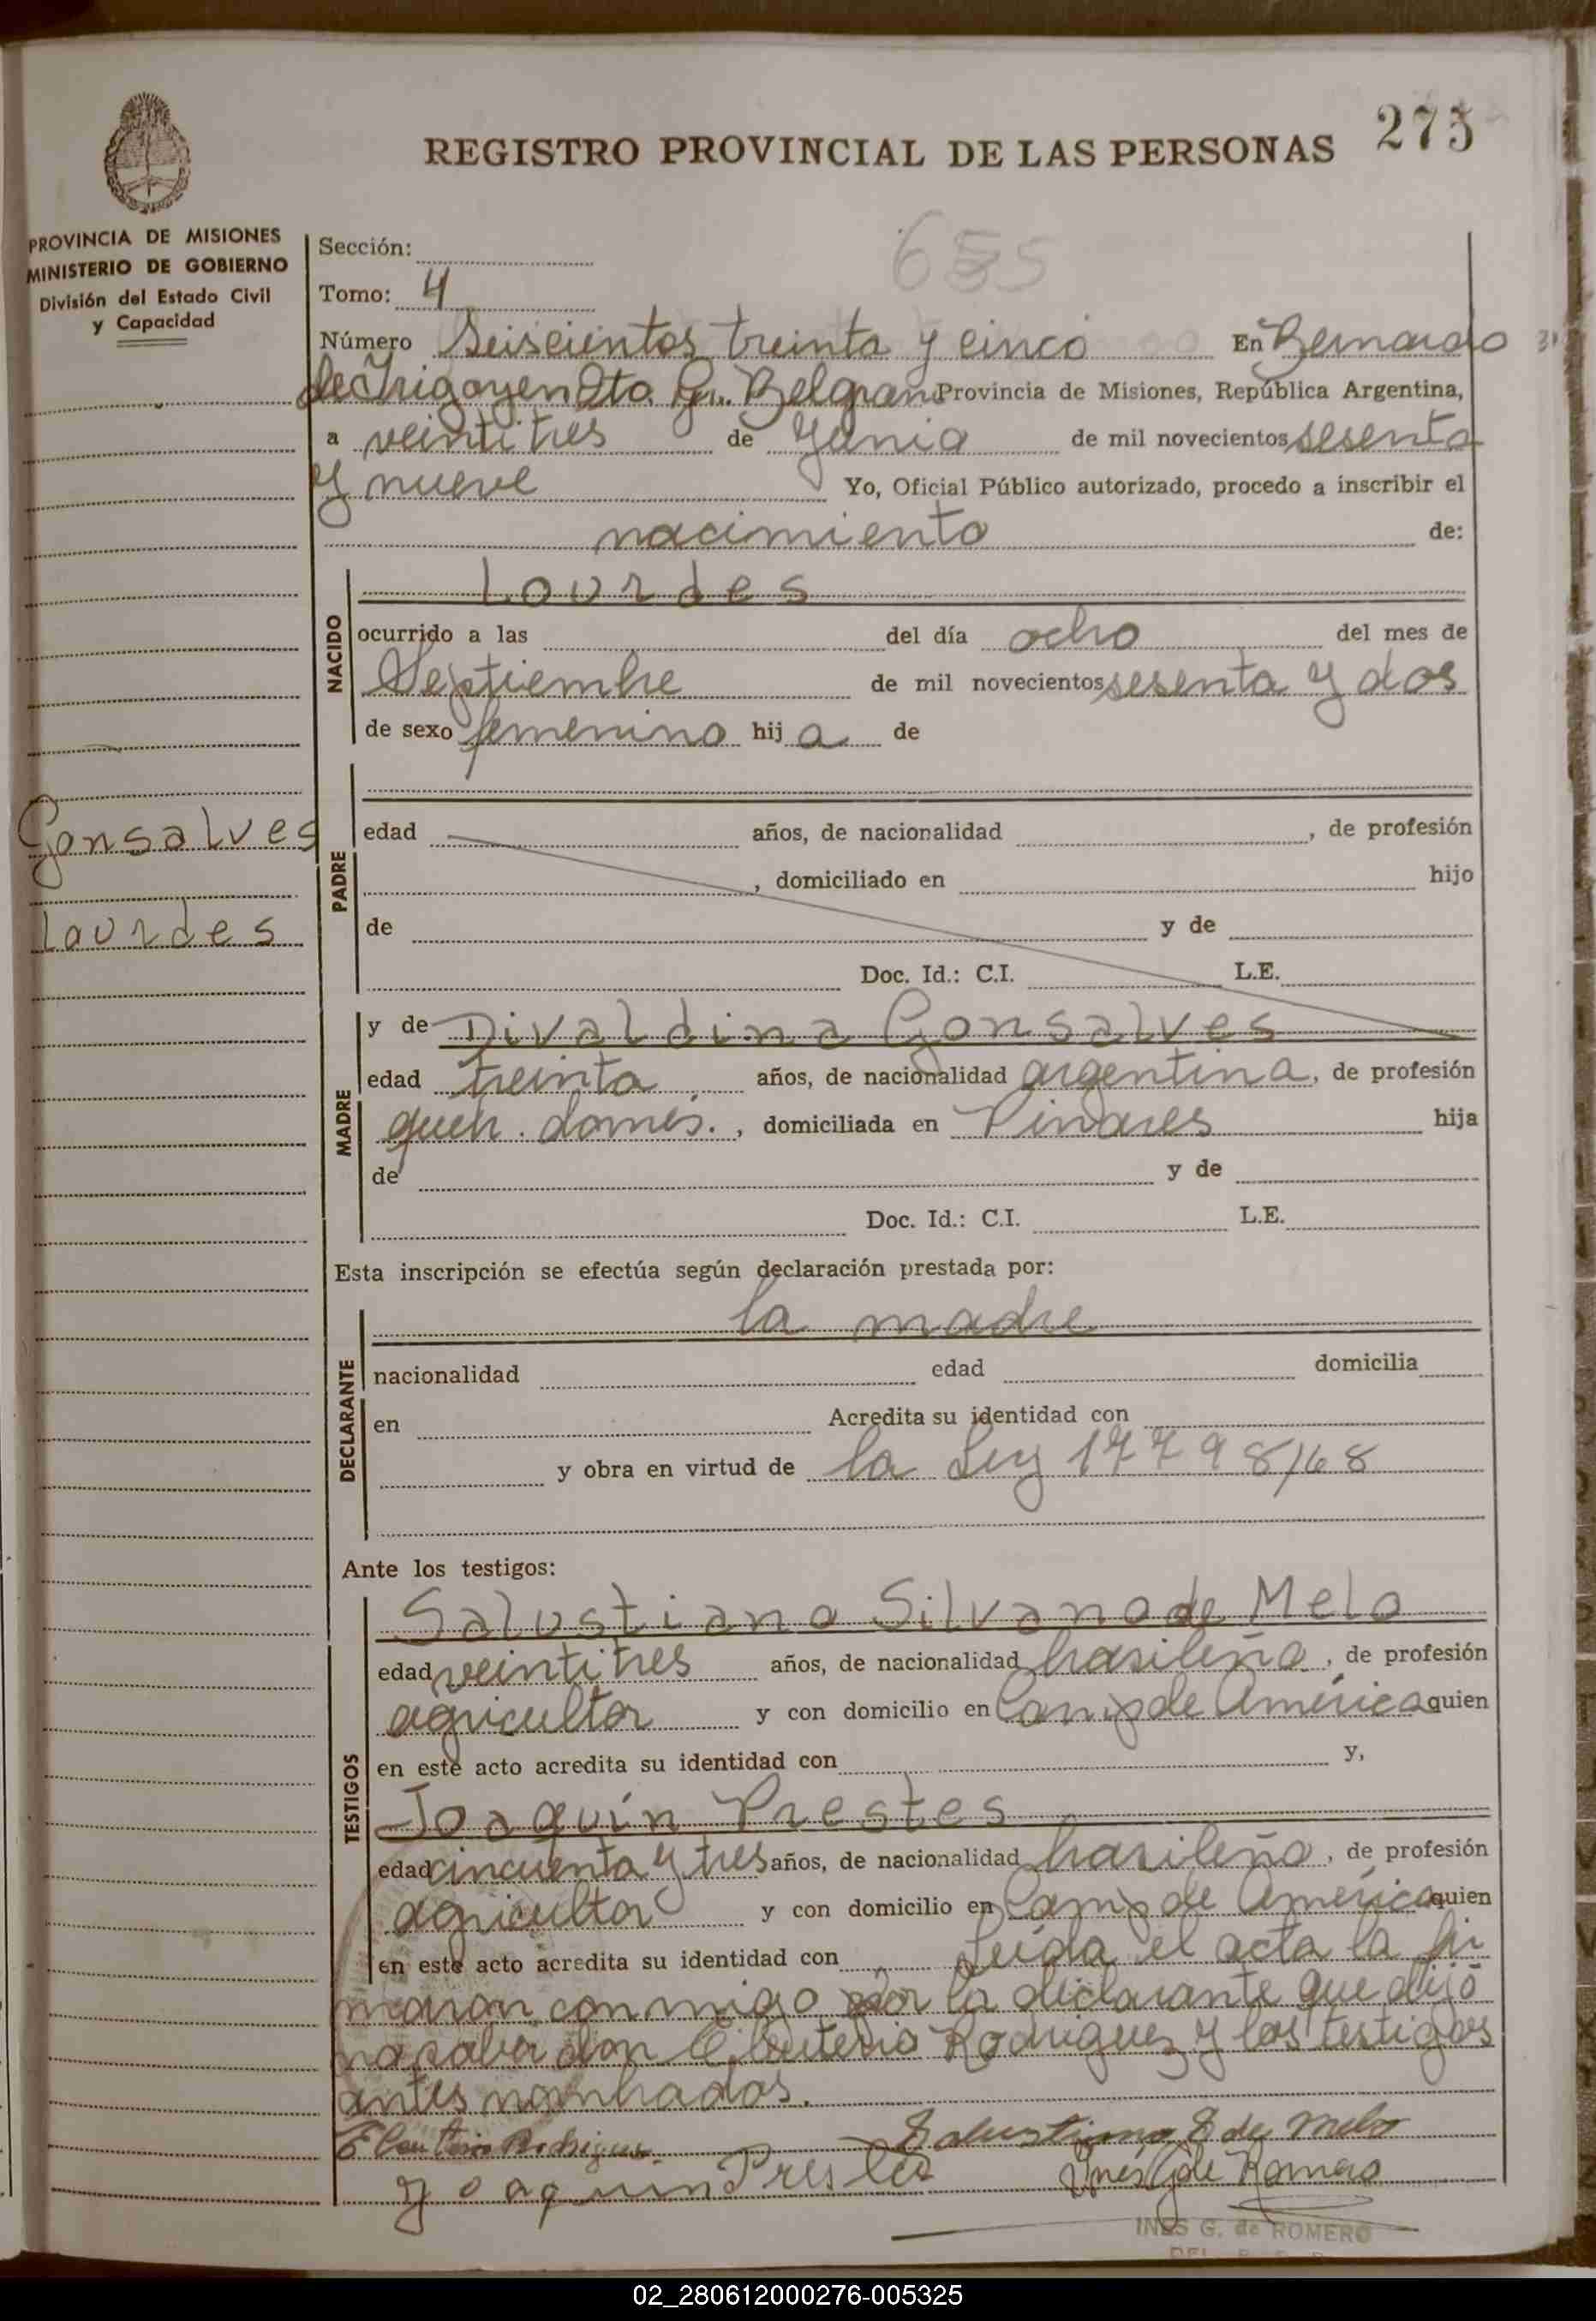 275
REGISTRO PROVINCIAL DE LAS PERSONAS
PROVINCIA DE MISIONES
MINISTERIO DE GOBIERNO
División del Estado Civil
y Capacidad
Gonsalves
Lourdes
Sección:
635
Tomo: 4
Número Seiscientos treinta y cinco En Bernardo
de Irigoyen Dto. Gr. Belgrano Provincia de Misiones, República Argentina,
a veintitres de Junio de mil novecientos sesenta
y nueve Yo, Oficial Público autorizado, procedo a inscribir el
nacimiento de:
NACIDO
Lourdes
ocurrido a las del día ocho del mes de
Septiembre de mil novecientos sesenta y dos
de sexo femenino hij a de
PADRE
edad años, de nacionalidad , de profesión
, domiciliado en hijo
de y de
Doc. Id.: C.I. L.E.
MADRE
y de Divaldina Gonsalves
edad treinta años, de nacionalidad argentina, de profesión
queh. domés., domiciliada en Pinares hija
de y de
Doc. Id.: C.I. L.E.
Esta inscripción se efectúa según declaración prestada por:
DECLARANTE
la madre
nacionalidad edad domicilia
en Acredita su identidad con
y obra en virtud de la Ley 17798/68
Ante los testigos:
TESTIGOS
Salustiano Silvano de Melo
edad veintitres años, de nacionalidad brasileño, de profesión
agricultor y con domicilio en Camp. de América quien
en este acto acredita su identidad con y,
Joaquín Prestes
edad cincuenta y tres años, de nacionalidad brasileño, de profesión
agricultor y con domicilio en Camp. de América quien
en este acto acredita su identidad con Leída el acta la fir
maron conmigo por la declarante que dijo
no saber don Eleuterio Rodriguez y los testigos
antes nombrados.
Eleuterio Rodrigues Salustiano S de Melo
Joaquim Prestes Inés G de Romero
INES G. de ROMERO
02_280612000276-005325